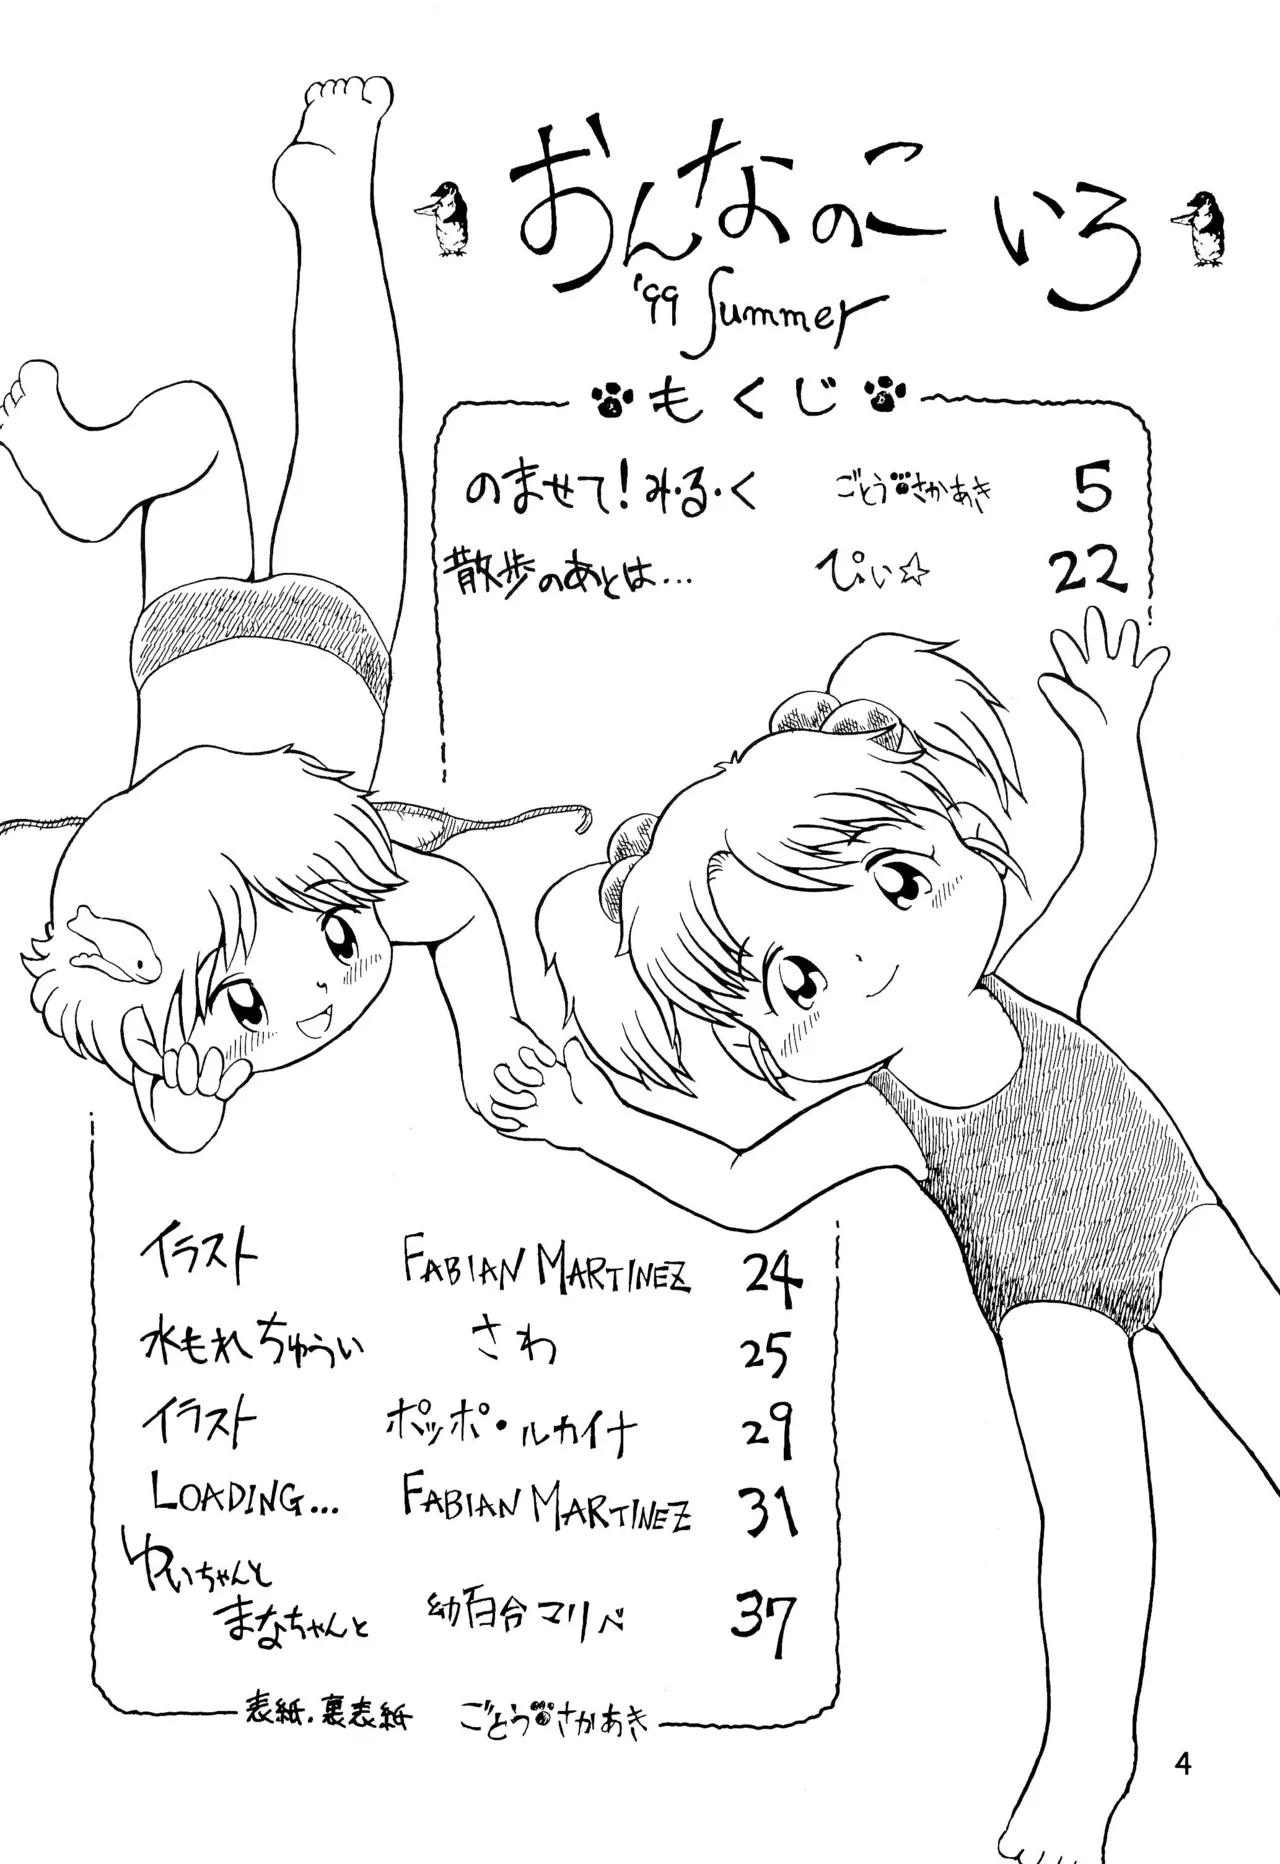 おんなのこ いろ
'99 Summer
もくじ
のませて！み・る・く ごとうさかあき 5
散歩のあとは… ぴぃ☆ 22
イラスト FABIAN MARTINEZ 24
水もれちゅうい さわ 25
イラスト ポッポ・ルカイナ 29
LOADING... FABIAN MARTINEZ 31
ゆいちゃんと
まなちゃんと 幼百合マリベ 37
表紙．裏表紙 ごとうさかあき
4